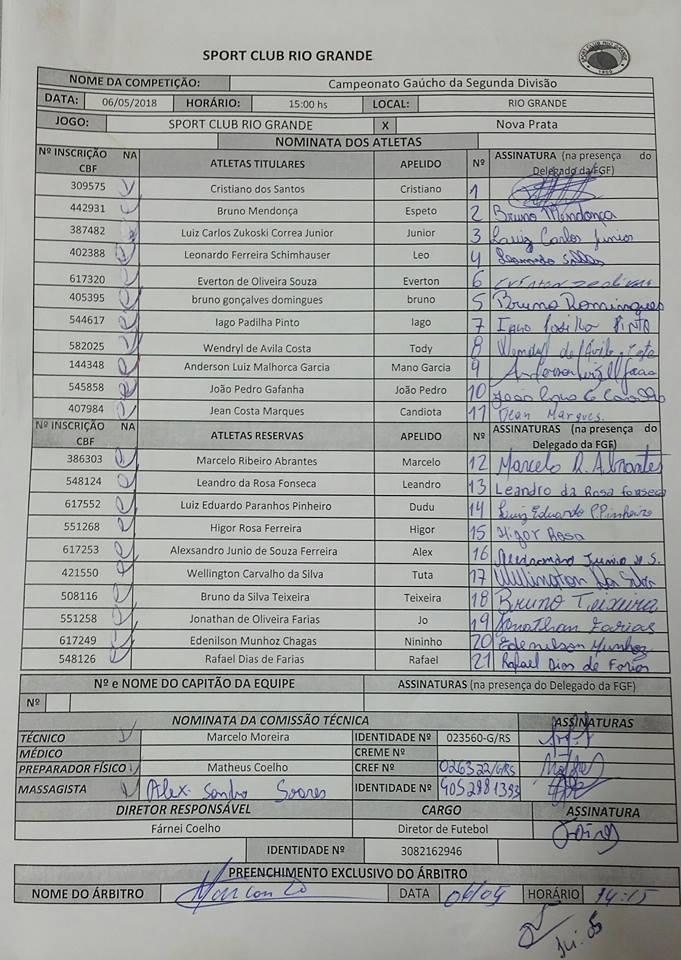 SPORT CLUB RIO GRANDE
SPORT CLUB RIO GRANDE
1900
NOME DA COMPETIÇÃO: Campeonato Gaúcho da Segunda Divisão
DATA: 06/05/2018 HORÁRIO: 15:00 hs LOCAL: RIO GRANDE
JOGO: SPORT CLUB RIO GRANDE X Nova Prata
NOMINATA DOS ATLETAS
Nº INSCRIÇÃO NA CBF ATLETAS TITULARES APELIDO Nº ASSINATURA (na presença do Delegado da FGF)
309575 Cristiano dos Santos Cristiano 1
442931 Bruno Mendonça Espeto 2 Bruno Mendonça
387482 Luiz Carlos Zukoski Correa Junior Junior 3 Luiz Carlos Junior
402388 Leonardo Ferreira Schimhauser Leo 4 Leonardo
617320 Everton de Oliveira Souza Everton 6
405395 bruno gonçalves domingues bruno 5 Bruno Domingues
544617 Iago Padilha Pinto Iago 7 Iago Padilha PINTO
582025 Wendryl de Avila Costa Tody 8 Wendryl de Ávila Costa
144348 Anderson Luiz Malhorca Garcia Mano Garcia 9 Anderson Luiz
545858 João Pedro Gafanha João Pedro 10 João
407984 Jean Costa Marques Candiota 11 Jean Marques.
Nº INSCRIÇÃO NA CBF ATLETAS RESERVAS APELIDO Nº ASSINATURAS (na presença do Delegado da FGF)
386303 Marcelo Ribeiro Abrantes Marcelo 12 Marcelo R. Abrantes
548124 Leandro da Rosa Fonseca Leandro 13 Leandro da Rosa Fonseca
617552 Luiz Eduardo Paranhos Pinheiro Dudu 14 Luiz Eduardo P. Pinheiro
551268 Higor Rosa Ferreira Higor 15 Higor Rosa
617253 Alexsandro Junio de Souza Ferreira Alex 16 Alexsandro Junio de S.
421550 Wellington Carvalho da Silva Tuta 17 Wellington Da Silva
508116 Bruno da Silva Teixeira Teixeira 18 Bruno Teixeira
551258 Jonathan de Oliveira Farias Jo 19 Jonathan Farias
617249 Edenilson Munhoz Chagas Nininho 20 Edenilson Munhoz
548126 Rafael Dias de Farias Rafael 21 Rafael Dias de Farias
Nº e NOME DO CAPITÃO DA EQUIPE ASSINATURAS (na presença do Delegado da FGF)
Nº
NOMINATA DA COMISSÃO TÉCNICA ASSINATURAS
TÉCNICO Marcelo Moreira IDENTIDADE Nº 023560-G/RS
MÉDICO CREME Nº
PREPARADOR FÍSICO Matheus Coelho CREF Nº 026322/G/RS
MASSAGISTA Alex Sandro Soares IDENTIDADE Nº 4052881393
DIRETOR RESPONSÁVEL CARGO ASSINATURA
Fárnei Coelho Diretor de Futebol
IDENTIDADE Nº 3082162946
PREENCHIMENTO EXCLUSIVO DO ÁRBITRO
NOME DO ÁRBITRO DATA HORÁRIO 14:15